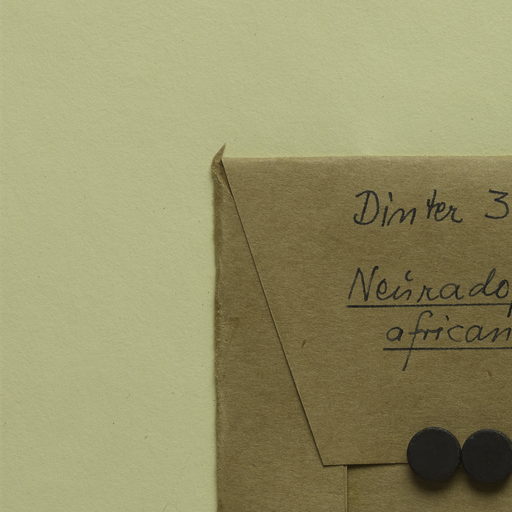 Dinter 3
Neŭradop
african